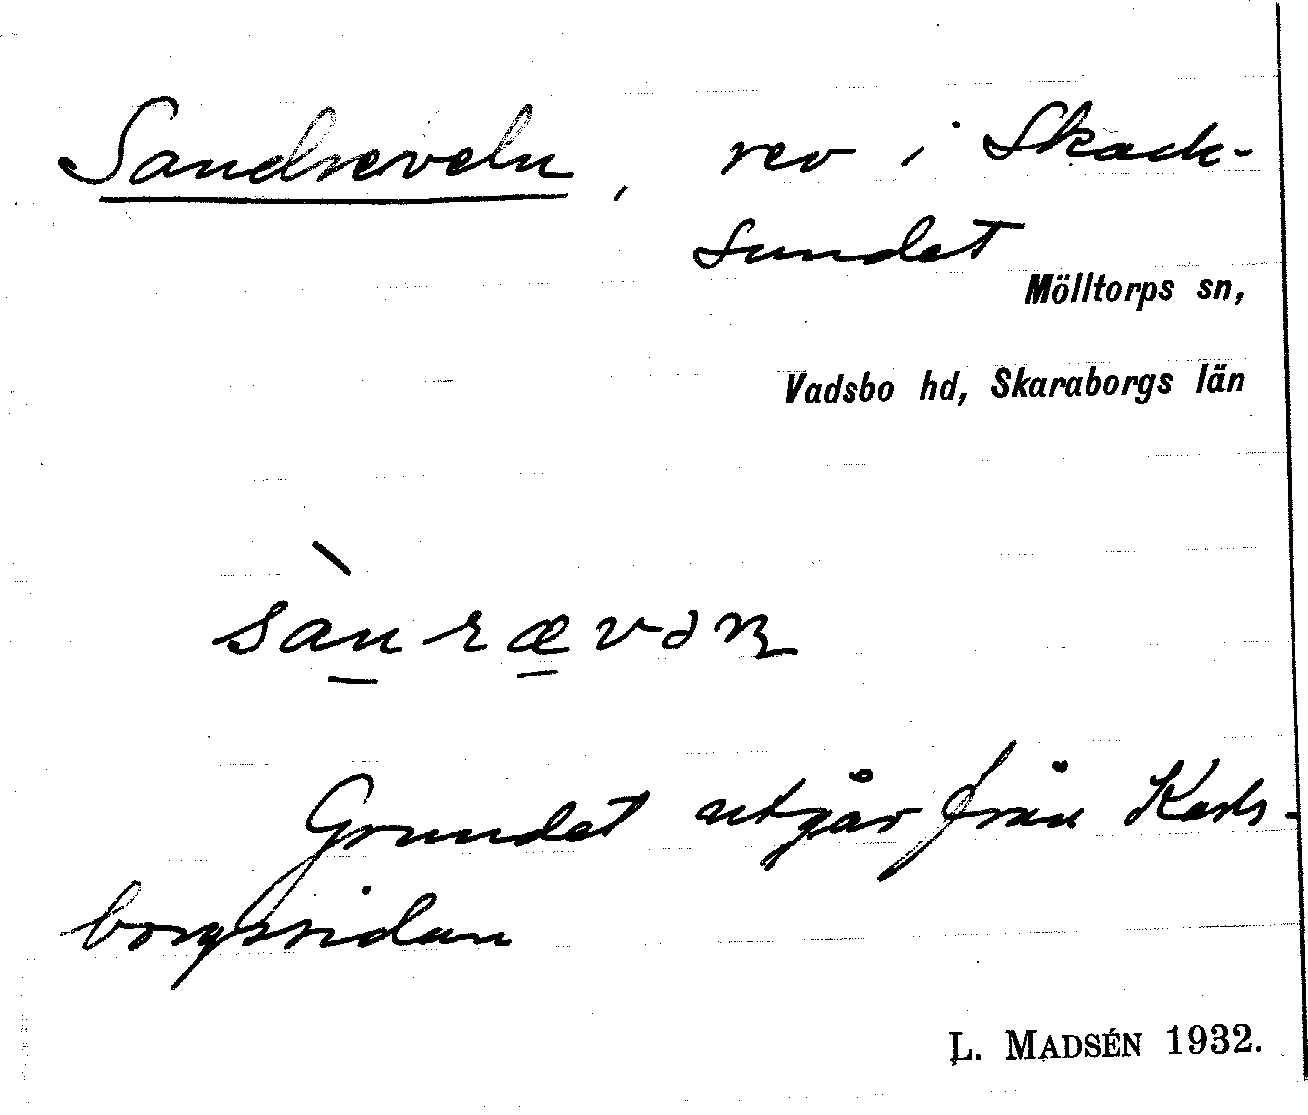 Sandreveln, rev i Skack-
sundet
Mölltorps sn,
Vadsbo hd, Skaraborgs län
sànrævəɳ
Grundet utgår från Karls-
borgssidan
L. MADSÉN 1932.